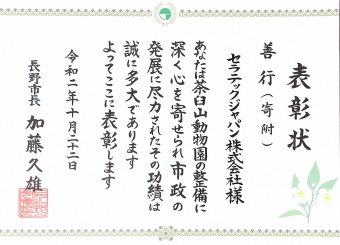 表彰状
善行（寄附）
セラテックジャパン株式会社様
あなたは茶臼山動物園の整備に
深く心を寄せられ市政の
発展に尽力されたその功績は
誠に多大であります
よってここに表彰します
令和二年十月二十二日
長野市長 加藤久雄